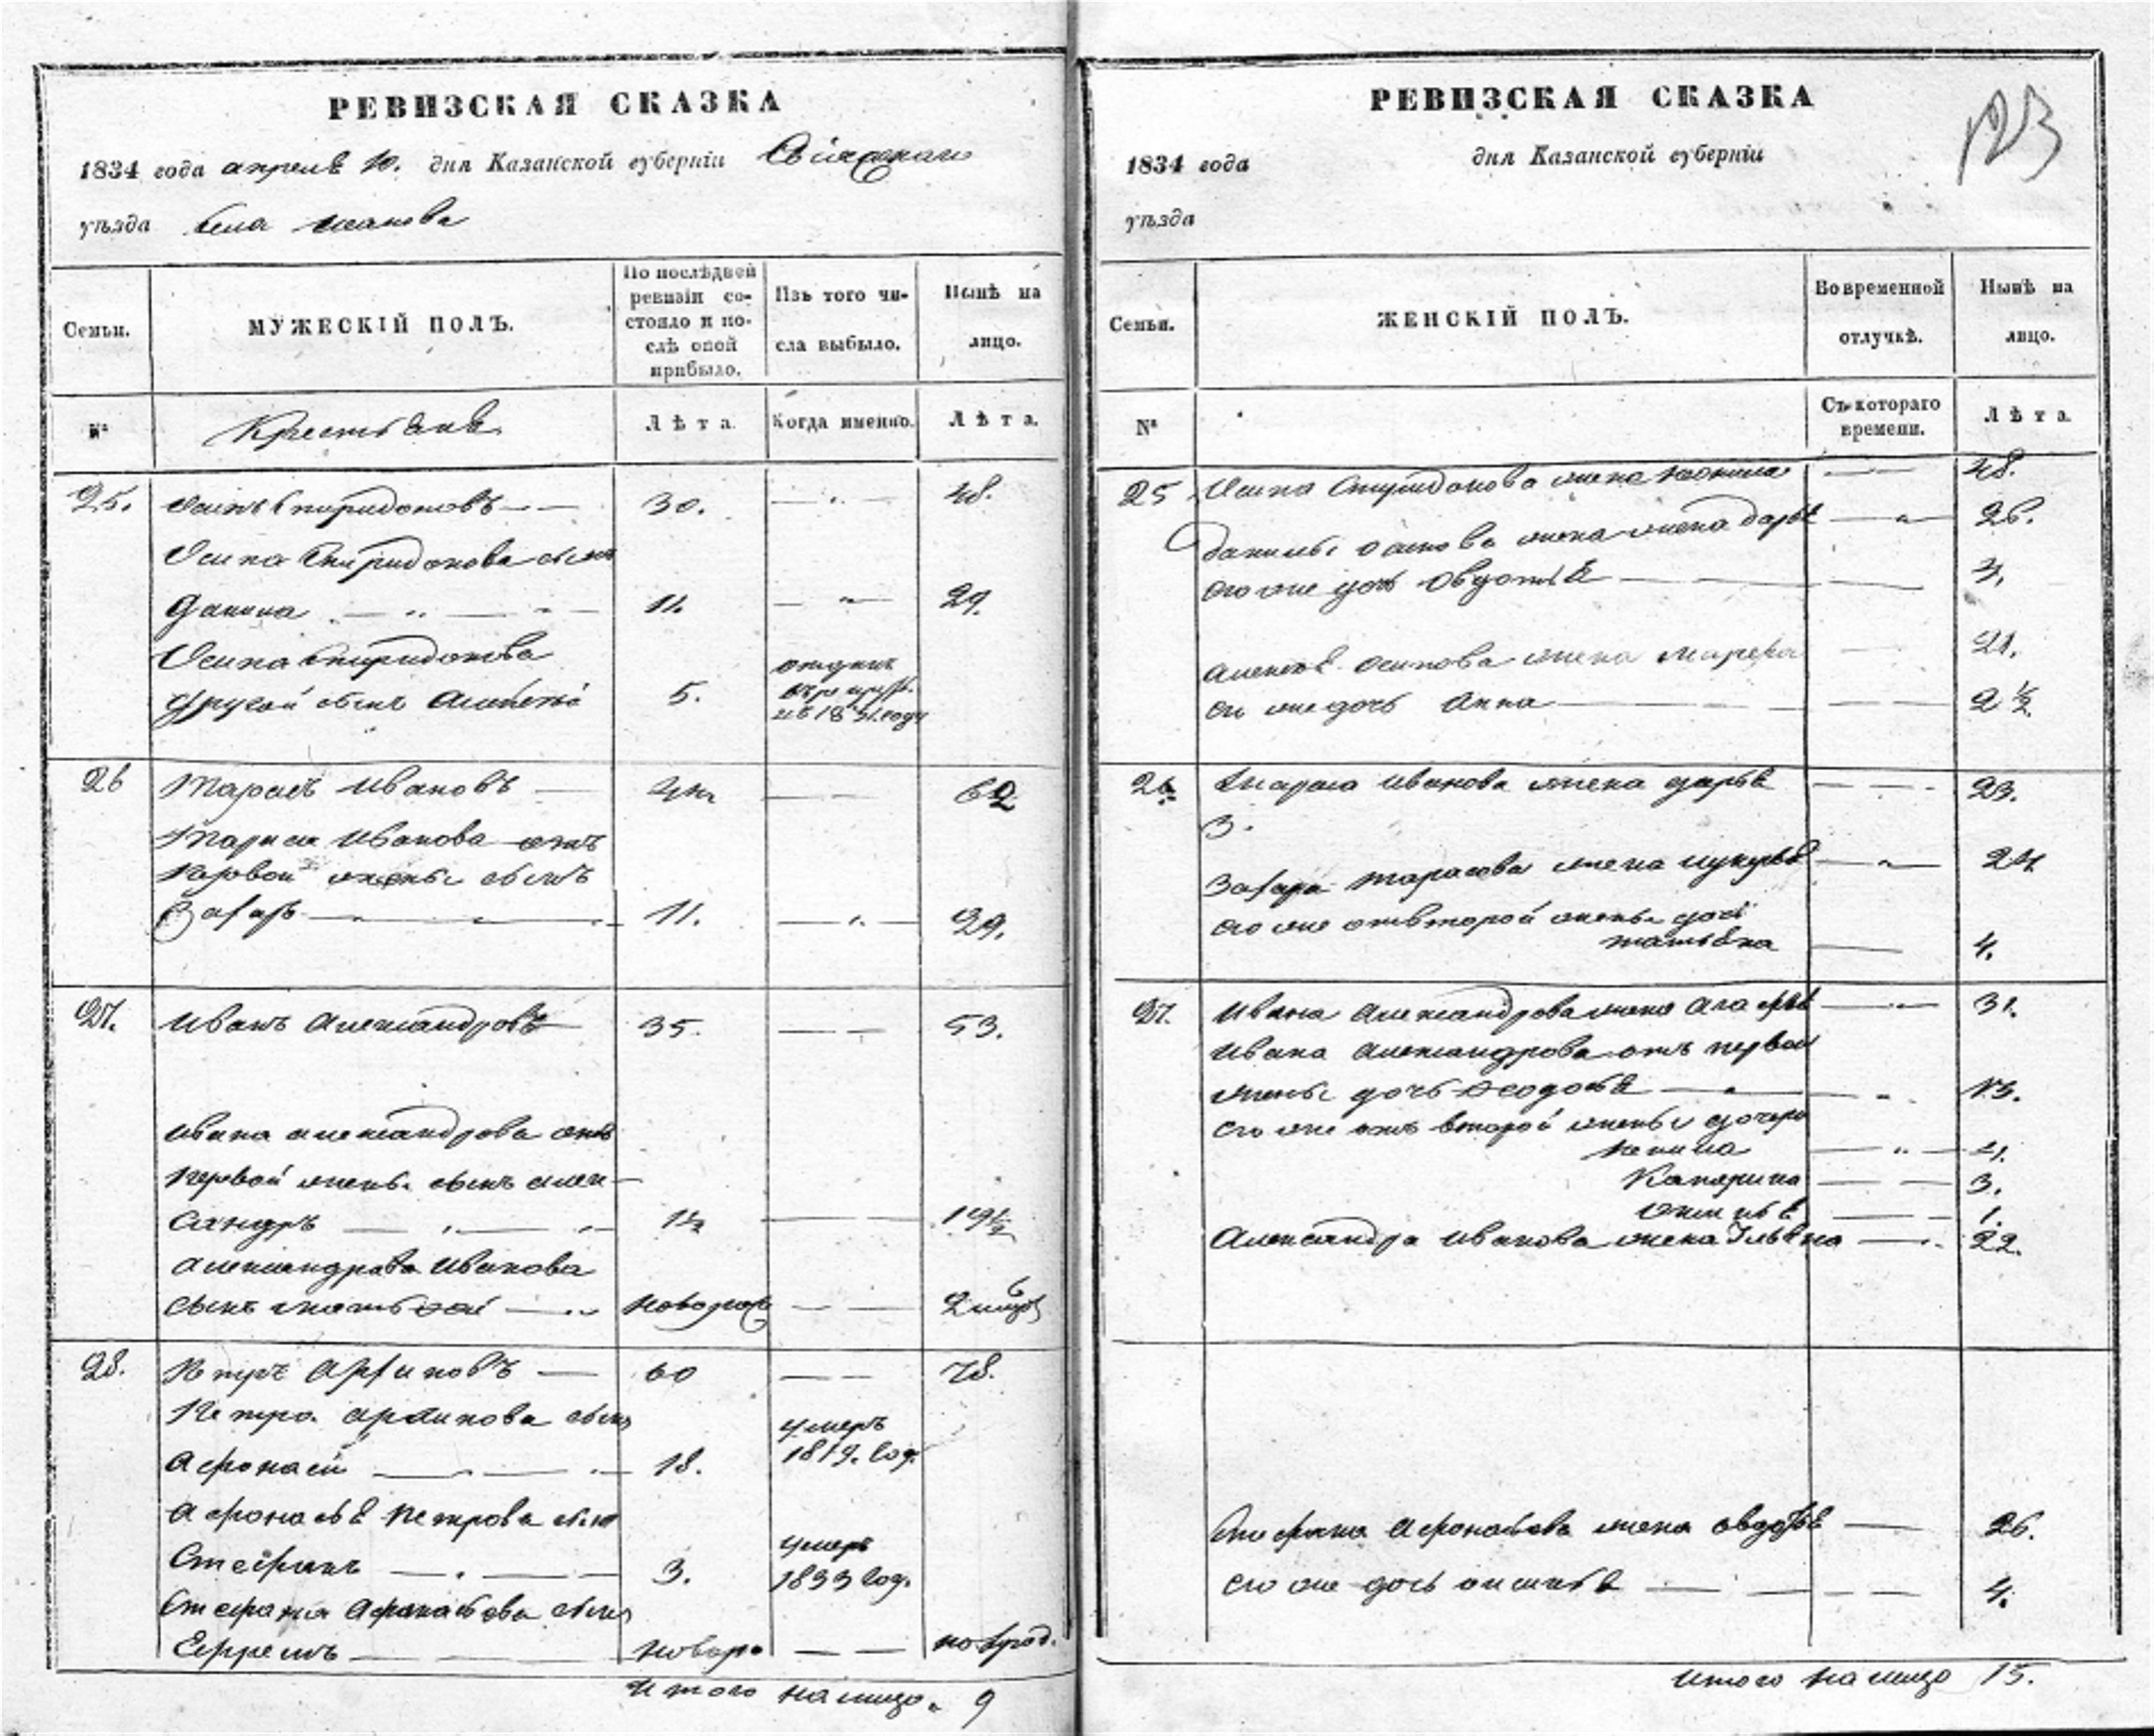 РЕВИЗСКАЯ СКАЗКА
1834 года апреля 10. дня Казанской губерніи
уѣзда села
Семьи.
МУЖЕСКІЙ ПОЛЪ.
По послѣдней
ревизіи со-
стояло и по-
слѣ оной
прибыло.
Изъ того чи-
сла выбыло.
Нынѣ на
лицо.
№
Крестьяне
Лѣта.
Когда именно.
Лѣта.
25. Осипъ Спиридоновъ 30. 48.
Осипа Спиридонова сынъ
Данила 11. 29.
Осипа Спиридонова
другой сынъ Алексей 5. отданъ
въ 1831 году
26 Тарасъ Ивановъ 44 62
Тараса Иванова отъ
первой жены сынъ
Захаръ 11. 29.
27. Иванъ Александровъ 35. 53.
Ивана Александрова отъ
первой жены сынъ Алек-
сандръ 1½ 19½
Александра Иванова
сынъ Матвей новорож 2
28. Петръ Архиповъ 60 78.
Петра Архипова сынъ
Афонасей 18. умеръ
1819. год.
Афонасья Петрова сынъ
Стефанъ 3. умеръ
1833 год.
Стефана Афонасьева сынъ
Ефремъ новоро новород.
Итого налицо. 9
РЕВИЗСКАЯ СКАЗКА
123
1834 года дня Казанской губерніи
уѣзда
Семьи.
ЖЕНСКІЙ ПОЛЪ.
Во временной
отлучкѣ.
Нынѣ на
лицо.
№
Съ котораго
времени.
Лѣта.
25 Осипа Спиридонова жена 48.
Данилы Осипова жена жена Дарья 26.
его же дочь Овдотья 3.
Алексея Осипова жена 21.
его же дочь Анна 2½
26 Тараса Иванова жена Дарья 23.
З.
Захара Тарасова жена Лукерья 24
его же от второй жены дочь
Татьяна 4.
27. Ивана Александрова жена Агафья 31.
Ивана Александрова отъ первой
жены дочь Феодосья 13.
его же отъ второй жены дочери
4.
Катерина 3.
1.
Александра Иванова жена Ульяна 22.
Стефана Афонасьева жена Овдотья 26.
его же дочь Аксинья 4.
Итого налицо 15.